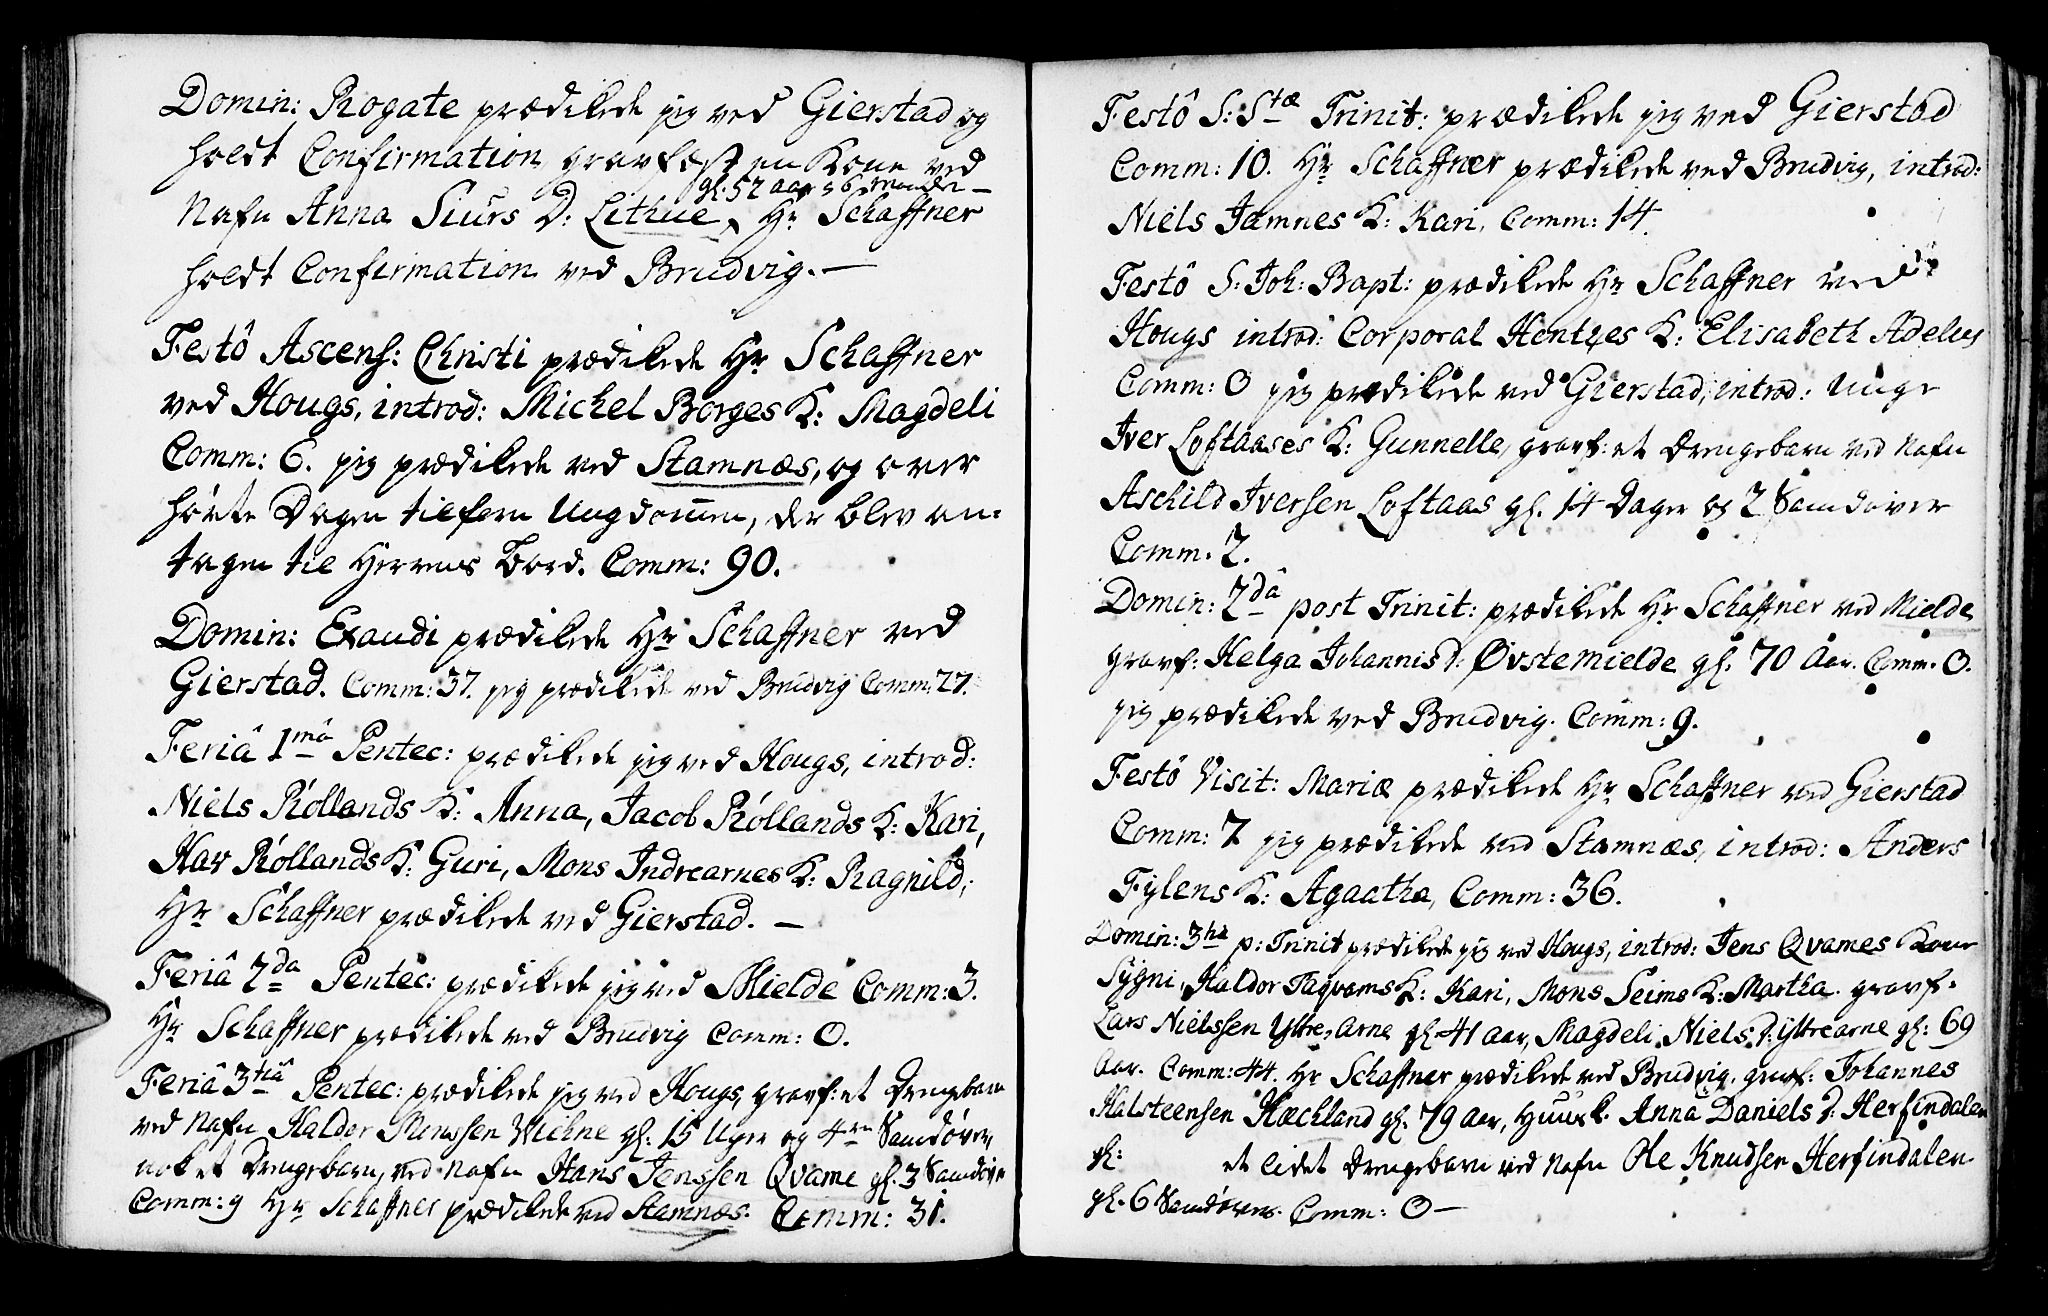 Domin: Rogate prædikede jeg ved Gierstad og
holdt Confirmation gravfæst en Kone ved
gl. 52 aar
Nafn Anna Siurs D: Lethue, Hr Schaffner
holdt Confirmation ved Brudvig. —
Festô Ascens: Christi prædikede Hr Schaffner
ved Hougs, introd: Michel Borges K: Magdeli
Comm: 6. jeg prædikede ved Stamnæs, og over
hørte Dagen tilforn Ungdommen, der blev an-
tagen til Herrens Bord. Comm: 90.
Domin: Exaudi prædikede Hr Schaffner ved
Gierstad. Comm: 37. jeg prædikede ved Brudvig Comm: 27.
Feriâ 1mâ Pentec: prædikede jeg ved Hougs, introd:
Niels Røllands K: Anna, Jacob Røllands K: Kari,
Hav Røllands K: Guri, Mons Indrearnes K: Ragnild,
Hr Schaffner prædikede ved Gierstad. —
Feriâ 2da Pentec: prædikede jeg ved Mielde Comm: 3.
Hr Schaffner prædikede ved Brudvig Comm: 0.
Feriâ 3tiâ Pentec: prædikede jeg ved Hougs, gravf: et Drengebarn
ved Nafn Haldor Monssen Wiehne gl: 15 Uger og 4re Samdøver,
nok et Drengebarn, ved Nafn Hans Jenssen Qvame gl. 3 Samdøvr
Comm: 9 Hr Schaffner prædikede ved Stamnæs. Comm: 31.
Festô S: Stæ Trinit: prædikede jeg ved Gierstad
Comm: 10. Hr Schaffner prædikede ved Brudvig, introd:
Niels Jamnes K: Kari, Comm: 14.
Festô S: Joh: Bapt: prædikede Hr Schaffner ved
Hougs introd: Corporal Hentzes K: Elisabeth Adelus
Comm: 0 jeg prædikede ved Gierstad, introd: Unge
Iver Loftaases K: Gunnelle, gravf: et Drengebarn ved Nafn
Aschild Iversen Loftaas gl. 14 Dager og 2 Samdøver
Comm. 2.
Domin: 2dâ post Trinit: prædikede Hr Schaffner ved Mielde
gravf: Helga Johannis D: Øvstemielde gl. 70 Aar. Comm. 0.
jeg prædikede ved Brudvig. Comm: 9.
Festô Visit: Mariæ prædikede Hr Schaffner ved Gierstad
Comm: 7 jeg prædikede ved Stamnæs, introd: Anders
Fylens K: Agaatha, Comm: 36.
Domin: 3tia p: Trinit prædikede jeg ved Hougs, introd: Jens Qvames Kone
Sygni, Haldor Tagvams K: Kari, Mons Seims K: Martha. gravf.
Lars Nielssen Yttre-Arne gl. 41 Aar, Magdeli Niels D: Yttrearne gl: 69
Aar. Comm: 44. Hr Schaffner prædikede ved Brudvig. gravf: Johannes
Halsteensen Hæchland gl. 79 Aar, Huusk. Anna Daniels D: Herfindalen
gl: et lidet Drengebarn ved Nafn Ole Knudsen Herfindalen
gl. 6 Samdøvers. Comm: 0 —